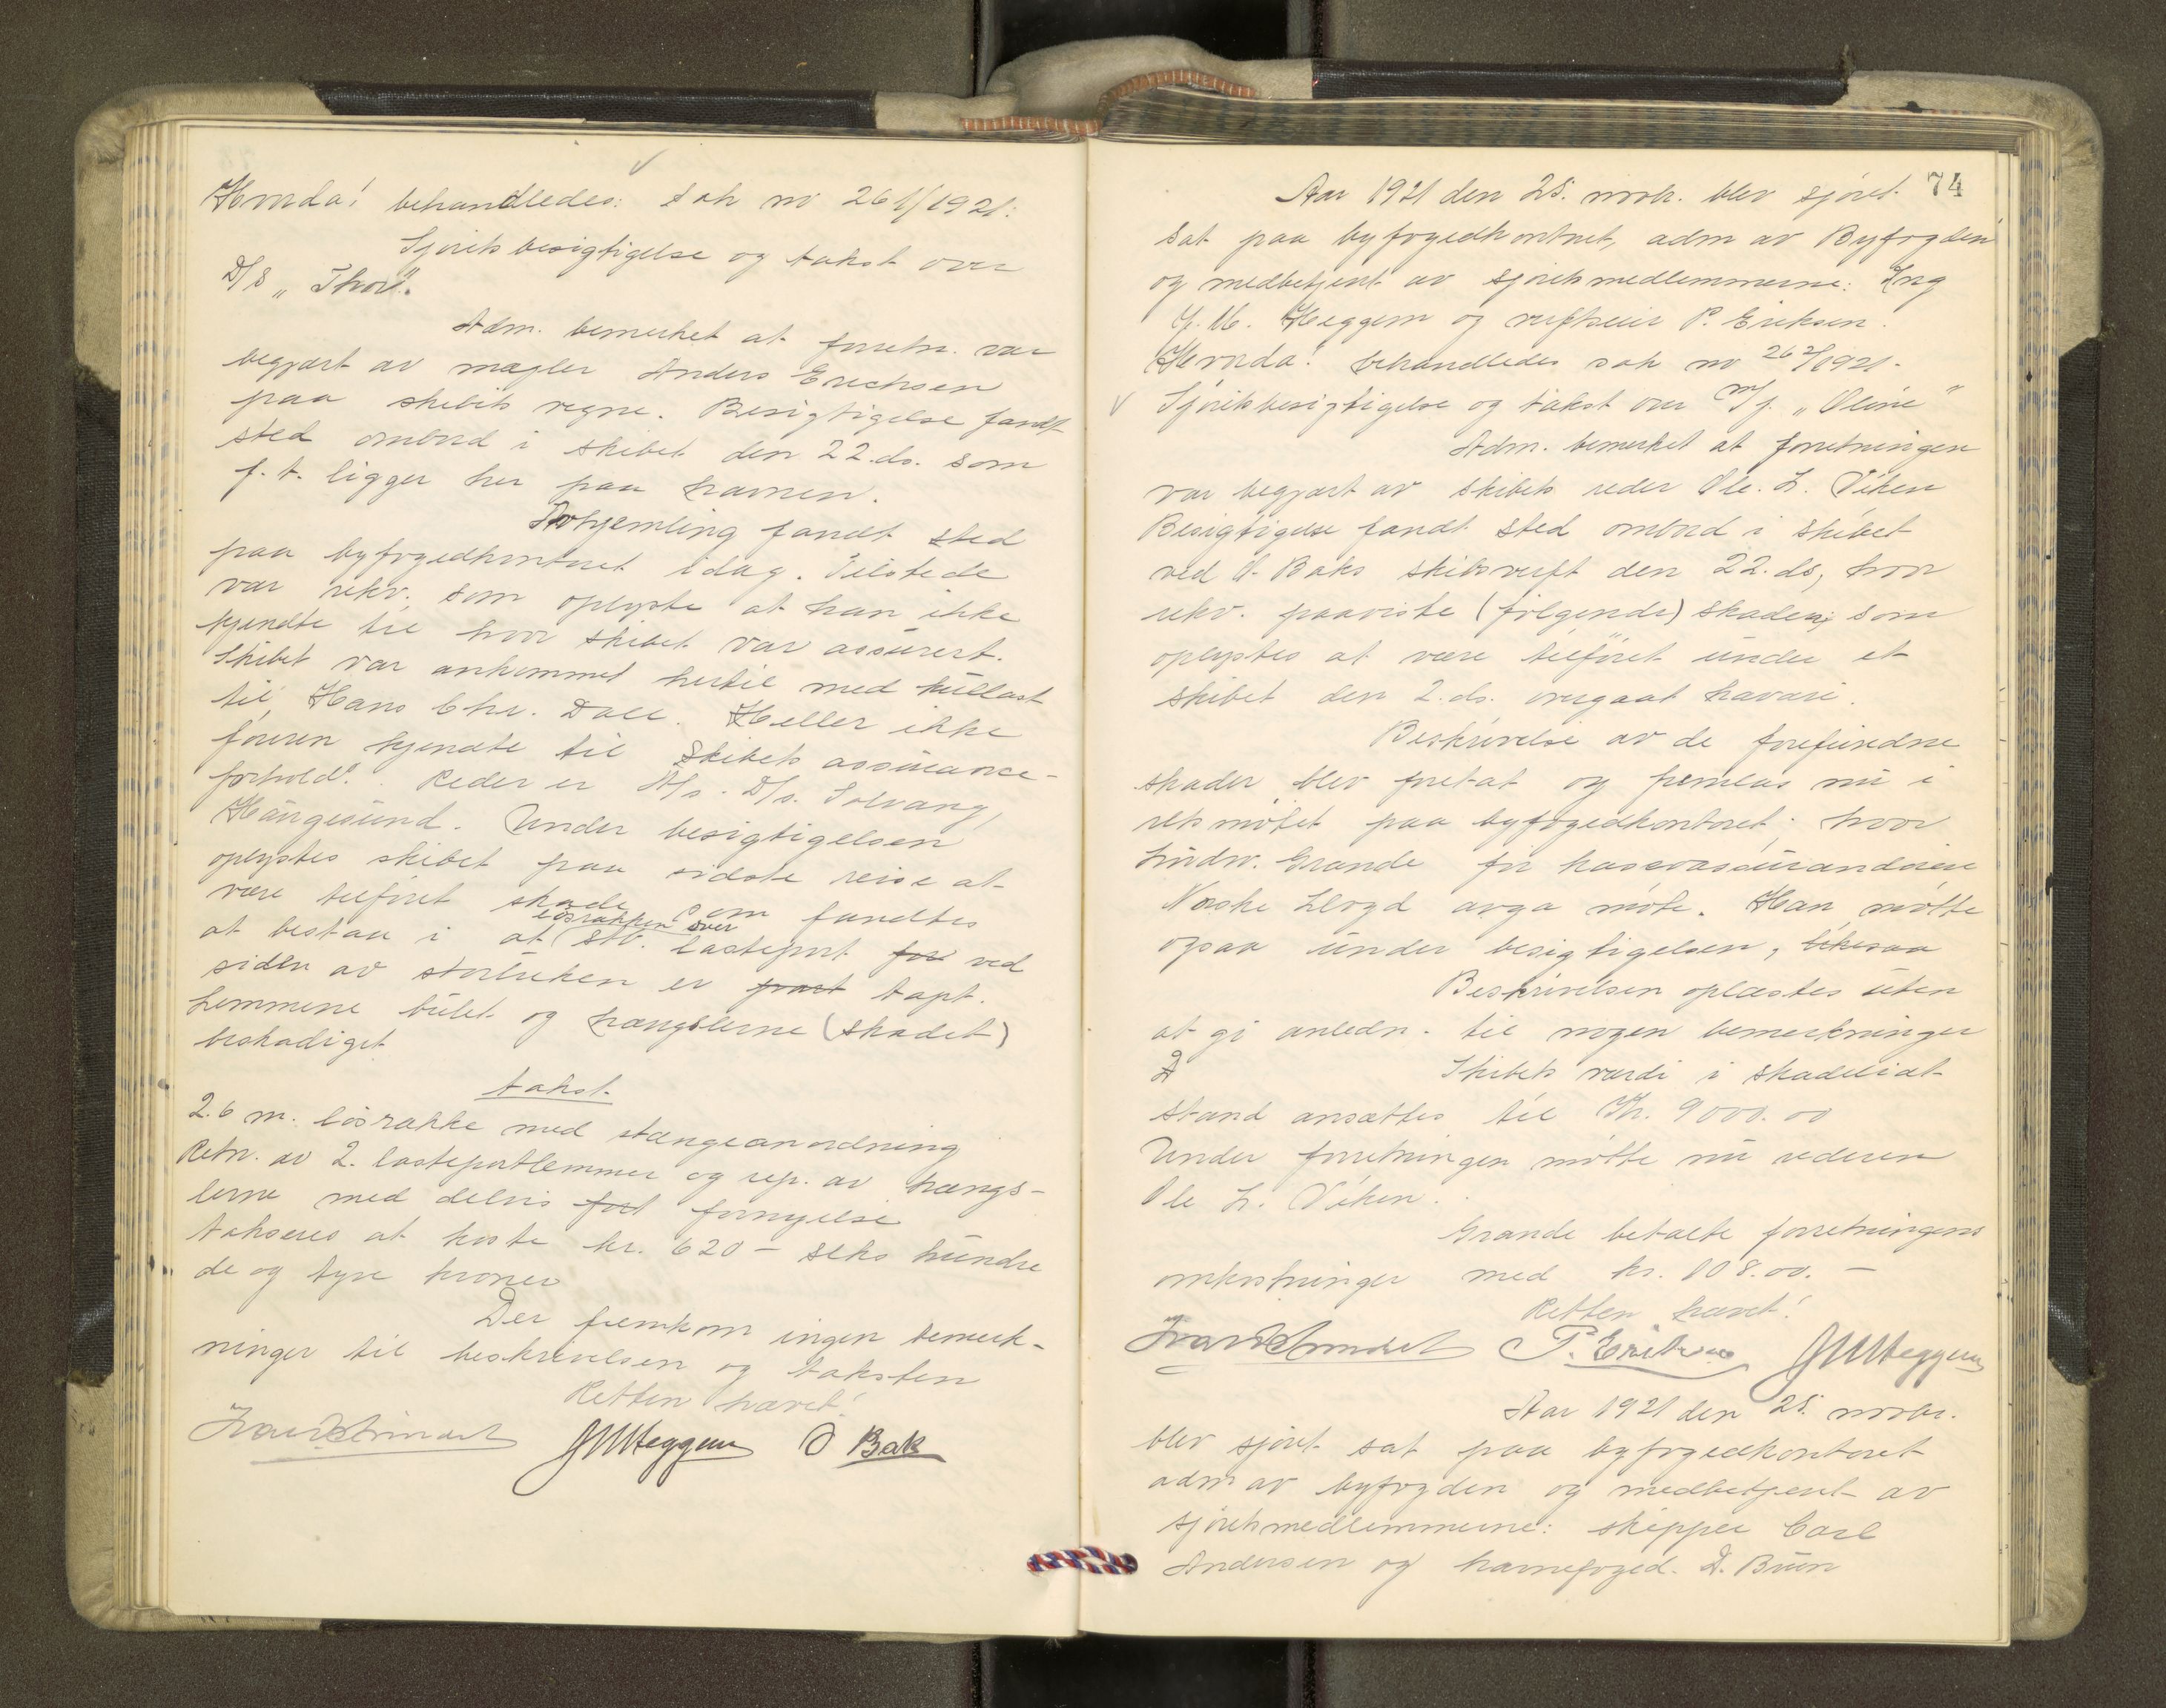 Hvorda! behandledes: Sak nr 261/1921:
Sjøretsbesigtigelse og takst over
D/S „Thor".
Adm. bemerket at forretn. var
begjært av mægler Anders Erichsen
paa skibets regne. Besigtigelse fandt
sted ombord i skibet den 22.ds. som
f.t. ligger her paa havnen.
Avhjemling fandt sted
paa byfogedkontoret idag. Tilstede
var rekv. som oplyste at han ikke
kjendte til hvor skibet var assurert.
Skibet var ankommet hertil med kullast
til Hans Chr. Dall. Heller ikke
føreren kjendte til skibets assurance-
forhold. Reder er A/s. D/s. Solvang,
Haugesund. Under besigtigelsen
oplystes skibet paa sidste reise at
være tilført skade som fandtes
løsrækken over
at bestaa i at stb. lasteport for ved
siden av storluken er
tapt.
Lemmene bulet og hængslerne (skadet)
beskadiget
takst.
2.6 m. løsrække med stængeanordning
Retn. av 2. lasteportlemmer og rep. av hængs-
lerne med delvis
fornyelse
takseres at koste kr. 620 – seks hundre
de og tyve kroner
Der fremkom ingen bemerk-
ninger til beskrivelsen og taksten
Retten hævet!
JMHeggem O Bak
74
Aar 1921 den 25. novbr. blev sjøret
sat paa byfogedkontoret, adm av Byfogden
og medbetjent av sjøretsmedlemmerne: Ing
J. M. Heggem og verftseier P. Eriksen.
Hvorda! behandledes sak nr 262/1921.
Sjøretsbesigtigelse og takst over M/j. „Oline"
Adm. bemerket at forretningen
var begjært av skibets reder Ole. L. Viken
Besigtigelse fandt sted ombord i skibet
ved O. Baks skibsverft den 22. ds, hvor
rekv. paaviste (følgende) skader, som
oplystes at være tilføiet under et
skibet den 2.ds. overgaat havari.
Beskrivelse av de forefundne
skader blev foretat og fremlas nu i
retsmøtet paa byfogedkontoret; hvor
Ludv. Grande for kascoassurandøren
Norske Lloyd avga møte. Han møtte
ogsaa under besigtigelsen, likesaa
Beskrivelsen oplæstes uten
at gi anledn. til nogen bemerkninger
Skibets værdi i skadelidt
stand ansættes til Kr. 9000.00
Under forretningen møtte nu rederen
Ole L. Viken.
Grande betalte forretningens
omkostninger med kr. 108.00. –
Retten hævet!
P. Eriksen JMHeggem
Aar 1921 den 25. novbr.
blev sjøret sat paa byfogedkontoret
adm av byfogden og medbetjent av
sjøretsmedlemmerne: skipper Carl
Andersen og havnefoged. D. Bruun